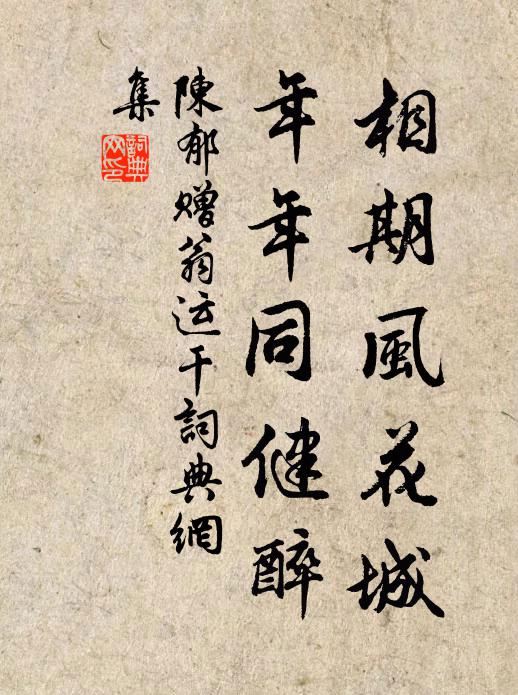 相期風花城
年年同健醉
陳郁赠翁运干詞典網
集
詞典
网印